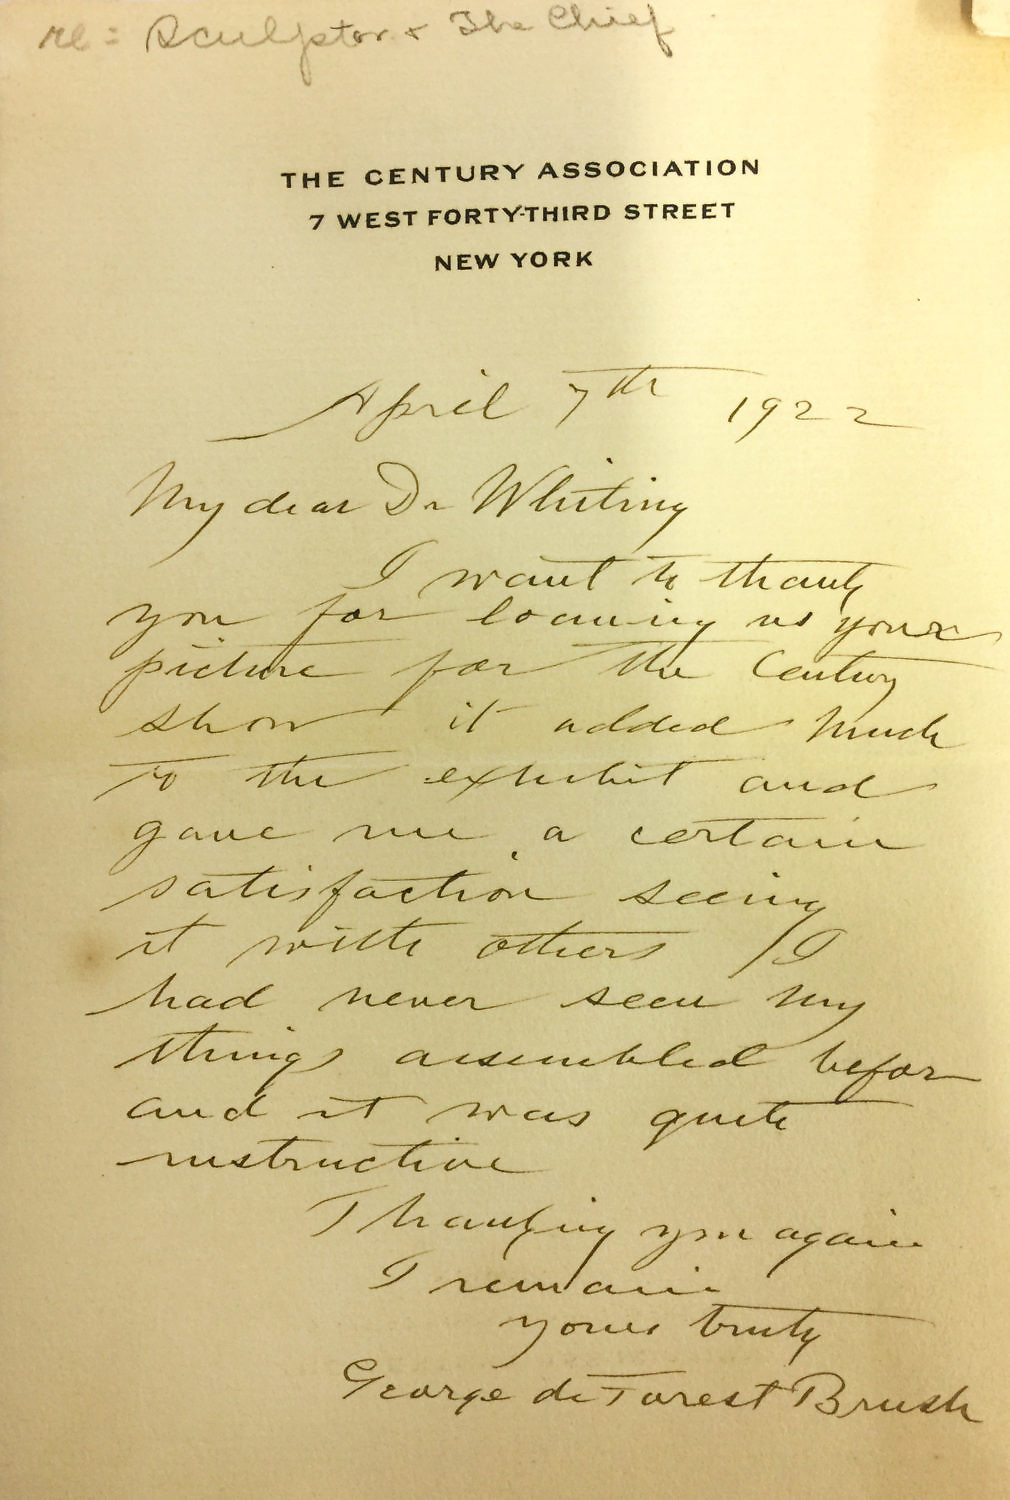 re: Sculptor & The Chief
THE CENTURY ASSOCIATION
7 WEST FORTY-THIRD STREET
NEW YORK
April 7th 1922
My dear Dr Whiting
I want to thank
you for loaning us your
picture for the Century
show it added much
to the exhibit and
gave me a certain
satisfaction seeing
it with others / I
had never seen my
things assembled befor
and it was quite
instructive
Thanking you again
I remain
yours truly
George de Forest Brush